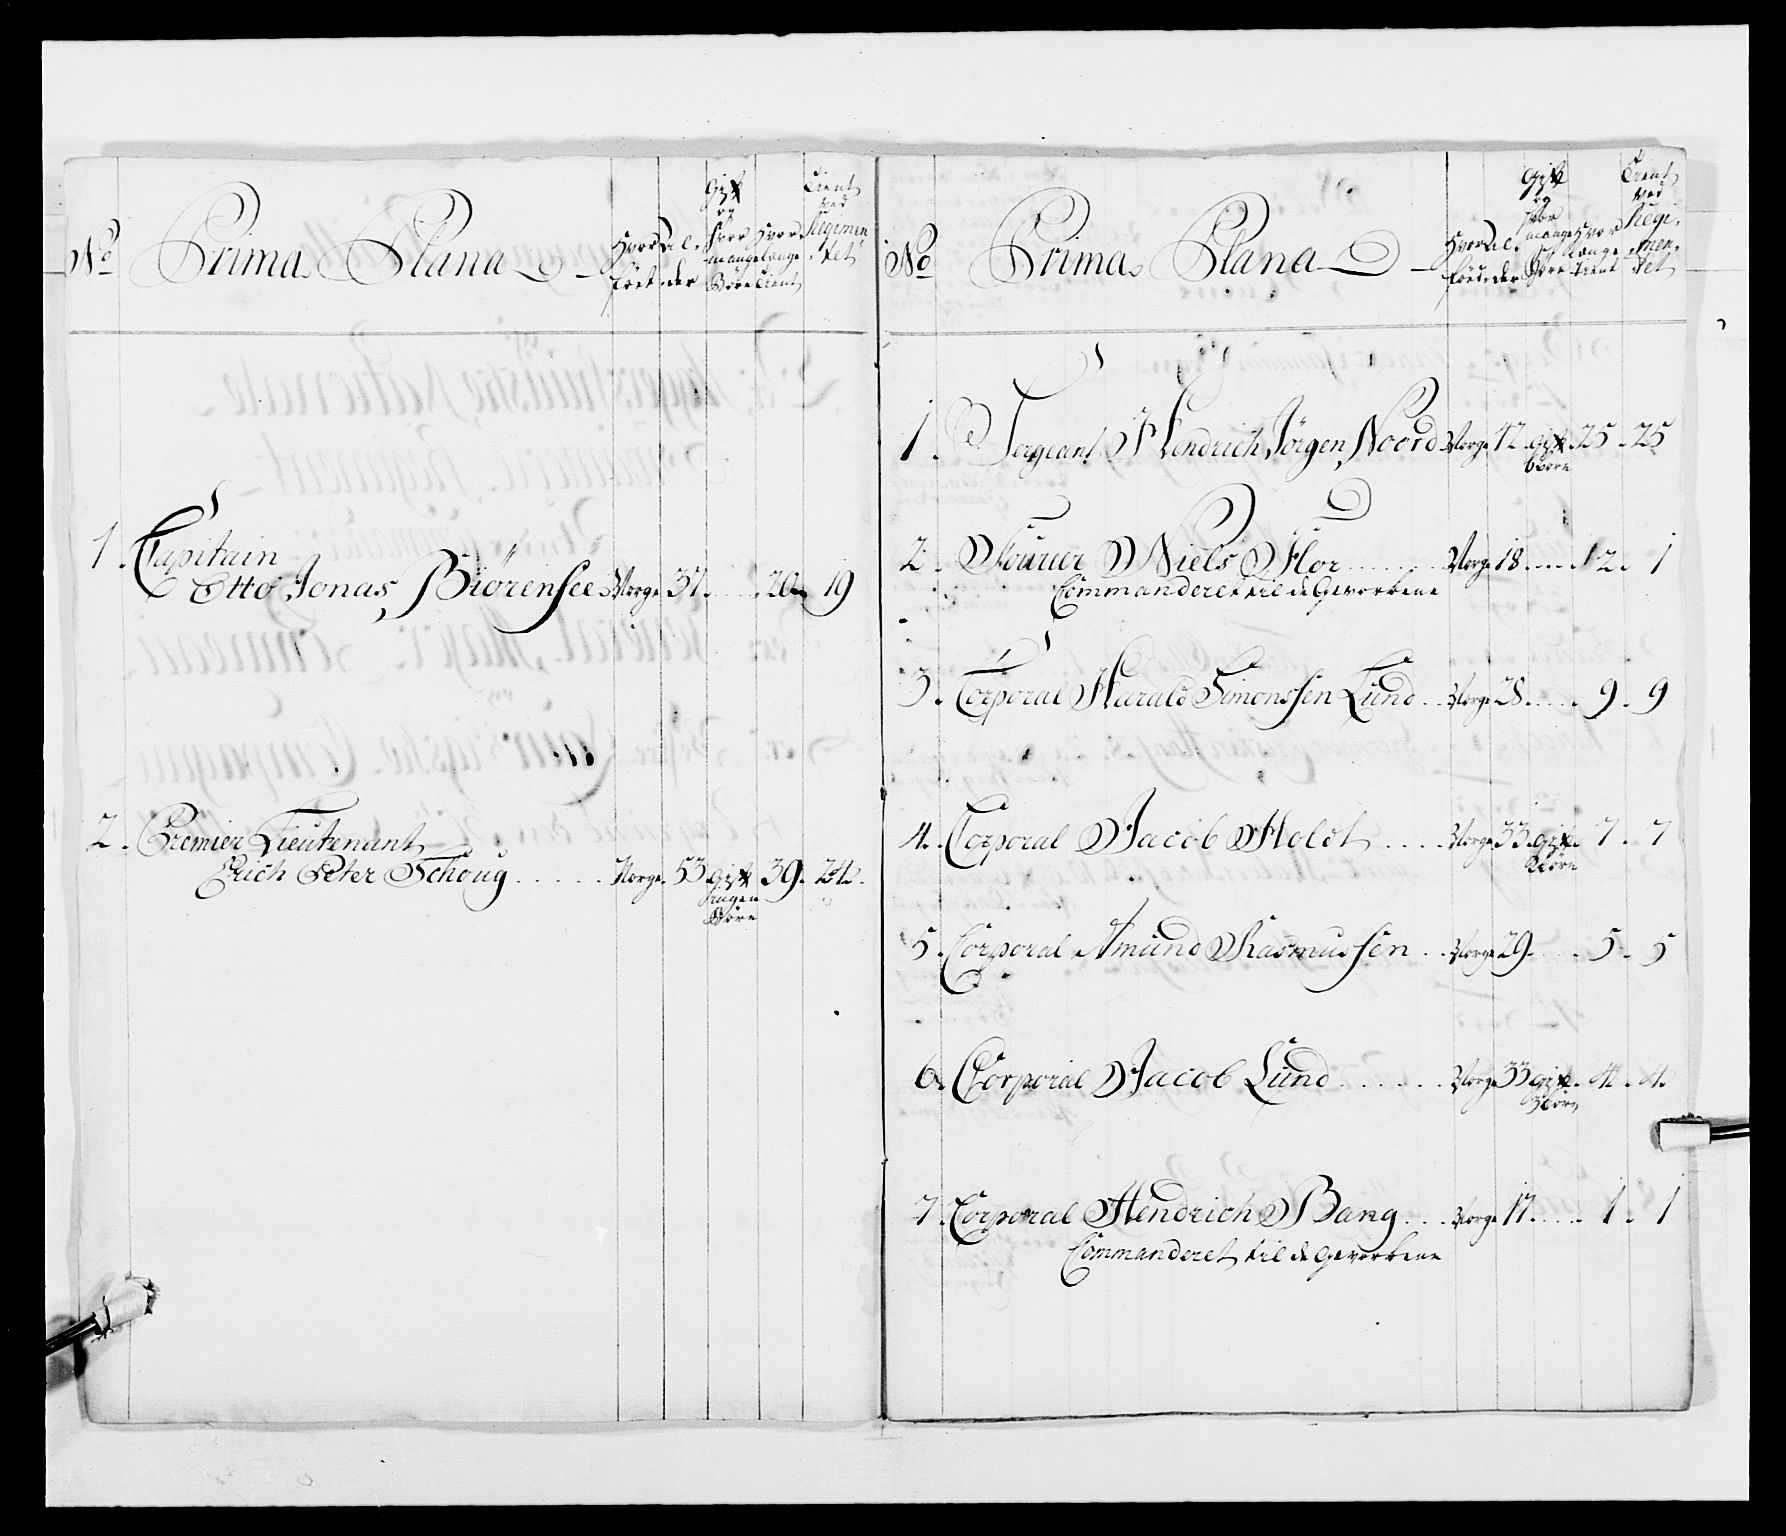 No
Prima Plana
Hvor föet
Al: der
Gift og hvor mange Börn
Hvor længe tient
Tient ved Regimentet
1. Capitain
Otto Jonas Biörensee Norge 37. 20 19
2. Premier Lieutenant
Erich Peter Schoug Norge 53 Gift 39. 24.
Ingen
Börn
No
Prima Plana
Hvor föed
Al: der
Gift og hvor mange Börn
Hvor længe tient
Tient ved Regimentet
1. Sergeant Hendrich Jörgen Noord Norge 42 Gift 25 25
Börn
2. Fourier Niels Flor Norge 18 12. 1
Commanderet til de Gevorbene
3. Corporal Harald Simonssen Lund Norge 28 9. 9
4. Corporal Jacob Holdt Norge 33 Gift 7. 7
Börn
5. Corporal Amund Rasmussen Norge 29. 5. 5
6. Corporal Jacob Lund Norge 33 Gift 4. 4.
Börn
7. Corporal Hendrich Bang Norge 17. 1. 1
Commanderet til de Gevorbene